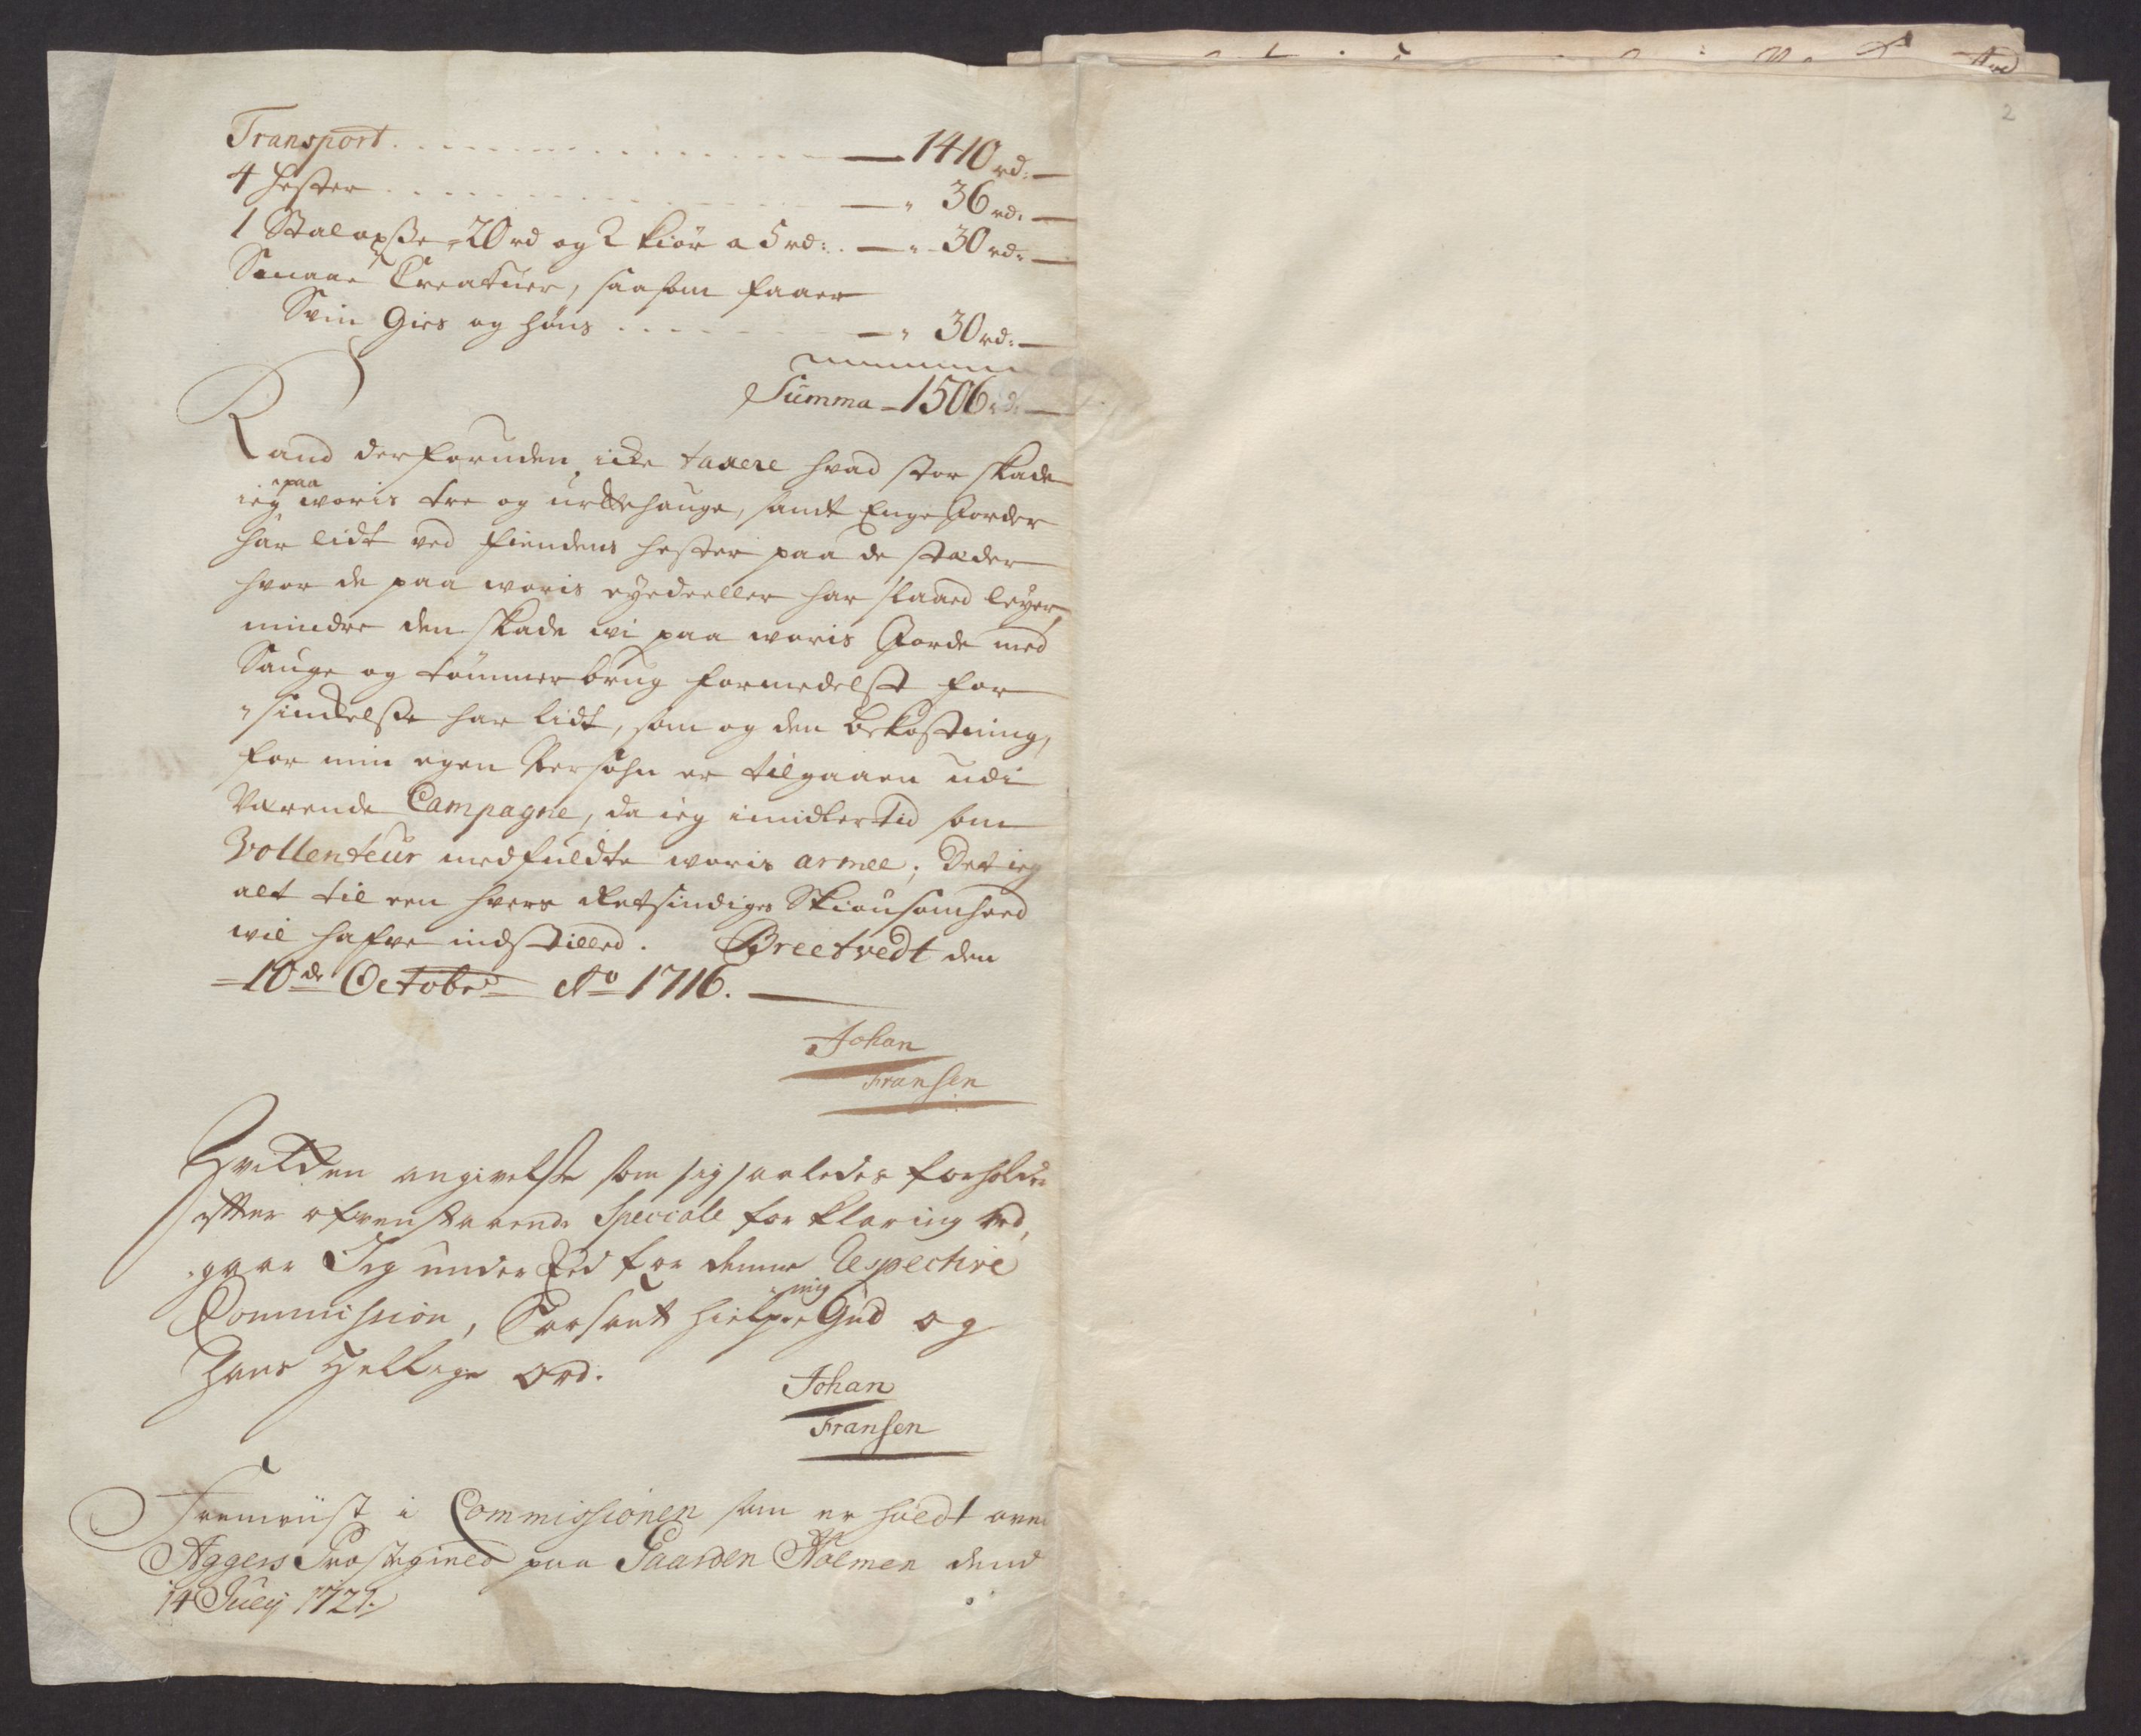 2
Transport. . . . . . . . . . . . — 1410 rd: —
4 hester . . . . . . . . . . . . — „ 36 rd: —
1 Staloxsse 20 rd og 2 kiör a 5 rd: . — „ 30 rd: —
Smaae Creatuer, saasom faaer
Svin Gies og höns . . . . . — „ 30 rd: —
Summa – 1506 rd: —
Kand derforuden icke taxere hvad stor skade
ieg paa woris træ og urttehauge, samt Enge Jorder
har lidt ved fiendens hester paa de stæder
hvor de paa woris eyedeeller har slaaed leyer,
mindre den skade wi paa woris Jorde med
Sauge og tömmerbrug formedelst for„
„sinckelsse har lidt, som og den bekostning,
for min egen Persohn er tilgaaen udi
Værende Campagne, da ieg imidlertid som
Vollenteur medfuldte woris armee; Det ieg
alt til een hvers Retsindiges Skiönsomheed
wil hafve indstilled. Breetvedt den
– 10de October Ao 1716. —
Johan
Fransen
Hvilcken angivelsse som sig saaledes forholder
efter ofvenstaaende Speciale forklaring ved,
gaar Jeg under Eed for denne Respective
Commission, Saasant hielpe mig Gud og
Hans Hellige Ord.
Johan
Fransen
Fremviist i Commissionen som er holdt over
Aggers Præstegield paa Gaarden Holmen dend
14 Julij 1721.